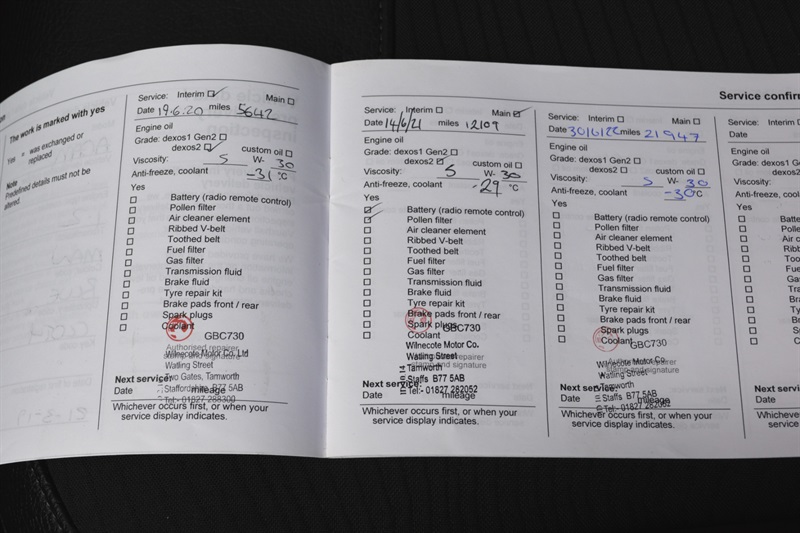 The work is marked with yes
Yes = was exchanged or
replaced
Note
Predefined details must not be
altered.
Service: Interim Main
Date 19.6.20 miles 5642
Engine oil
Grade: dexos1 Gen2
dexos2 custom oil
Viscosity: 5 W- 30
Anti-freeze, coolant -31 °C
Yes
Battery (radio remote control)
Pollen filter
Air cleaner element
Ribbed V-belt
Toothed belt
Fuel filter
Gas filter
Transmission fluid
Brake fluid
Tyre repair kit
Brake pads front / rear
Spark plugs
Coolant
GBC730
Authorised repairer
stamp and signature
Wilnecote Motor Co. Ltd
Watling Street
Two Gates, Tamworth
Staffordshire B77 5AB
Tel:- 01827 288300
Next service:
Date mileage
Whichever occurs first, or when your
service display indicates.
Service: Interim Main
Date 14/6/21 miles 12109
Engine oil
Grade: dexos1 Gen2
dexos2 custom oil
Viscosity: 5 W- 30
Anti-freeze, coolant -29 °C
Yes
Battery (radio remote control)
Pollen filter
Air cleaner element
Ribbed V-belt
Toothed belt
Fuel filter
Gas filter
Transmission fluid
Brake fluid
Tyre repair kit
Brake pads front / rear
Spark plugs
Coolant
GBC730
Wilnecote Motor Co.
Watling Street
Tamworth
Staffs B77 5AB
Tel:- 01827 282052
Next service:
Date mileage
Whichever occurs first, or when your
service display indicates.
Service confirm
Service: Interim Main
Date 30/6/22 miles 21947
Engine oil
Grade: dexos1 Gen2
dexos2 custom oil
Viscosity: 5 W- 30
Anti-freeze, coolant -30°C
Yes
Battery (radio remote control)
Pollen filter
Air cleaner element
Ribbed V-belt
Toothed belt
Fuel filter
Gas filter
Transmission fluid
Brake fluid
Tyre repair kit
Brake pads front / rear
Spark plugs
Coolant
GBC730
Wilnecote Motor Co.
Watling Street
Tamworth
Staffs B77 5AB
Next service:
Date mileage
Whichever occurs first, or when your
service display indicates.
Service:
Date
Engine oil
Grade: dexos1
Viscosity:
Anti-freeze, coolan
Yes
Battery
Pollen
Air cle
Ribbe
Tooth
Fuel f
Gas f
Tran
Bra
Tyr
Br
S
C
Next service
Date
Whichever oc
service d